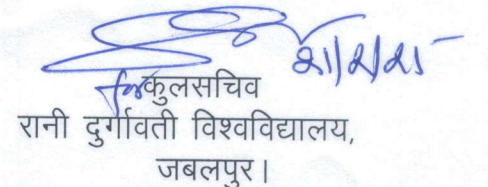 for कुलसचिव
रानी दुर्गावती विश्वविद्यालय,
जबलपुर।